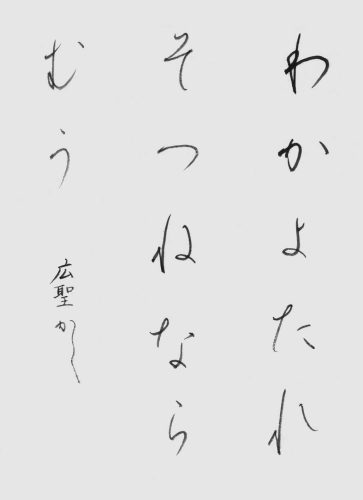 わかよたれ
そつねなら
むう
広聖かく